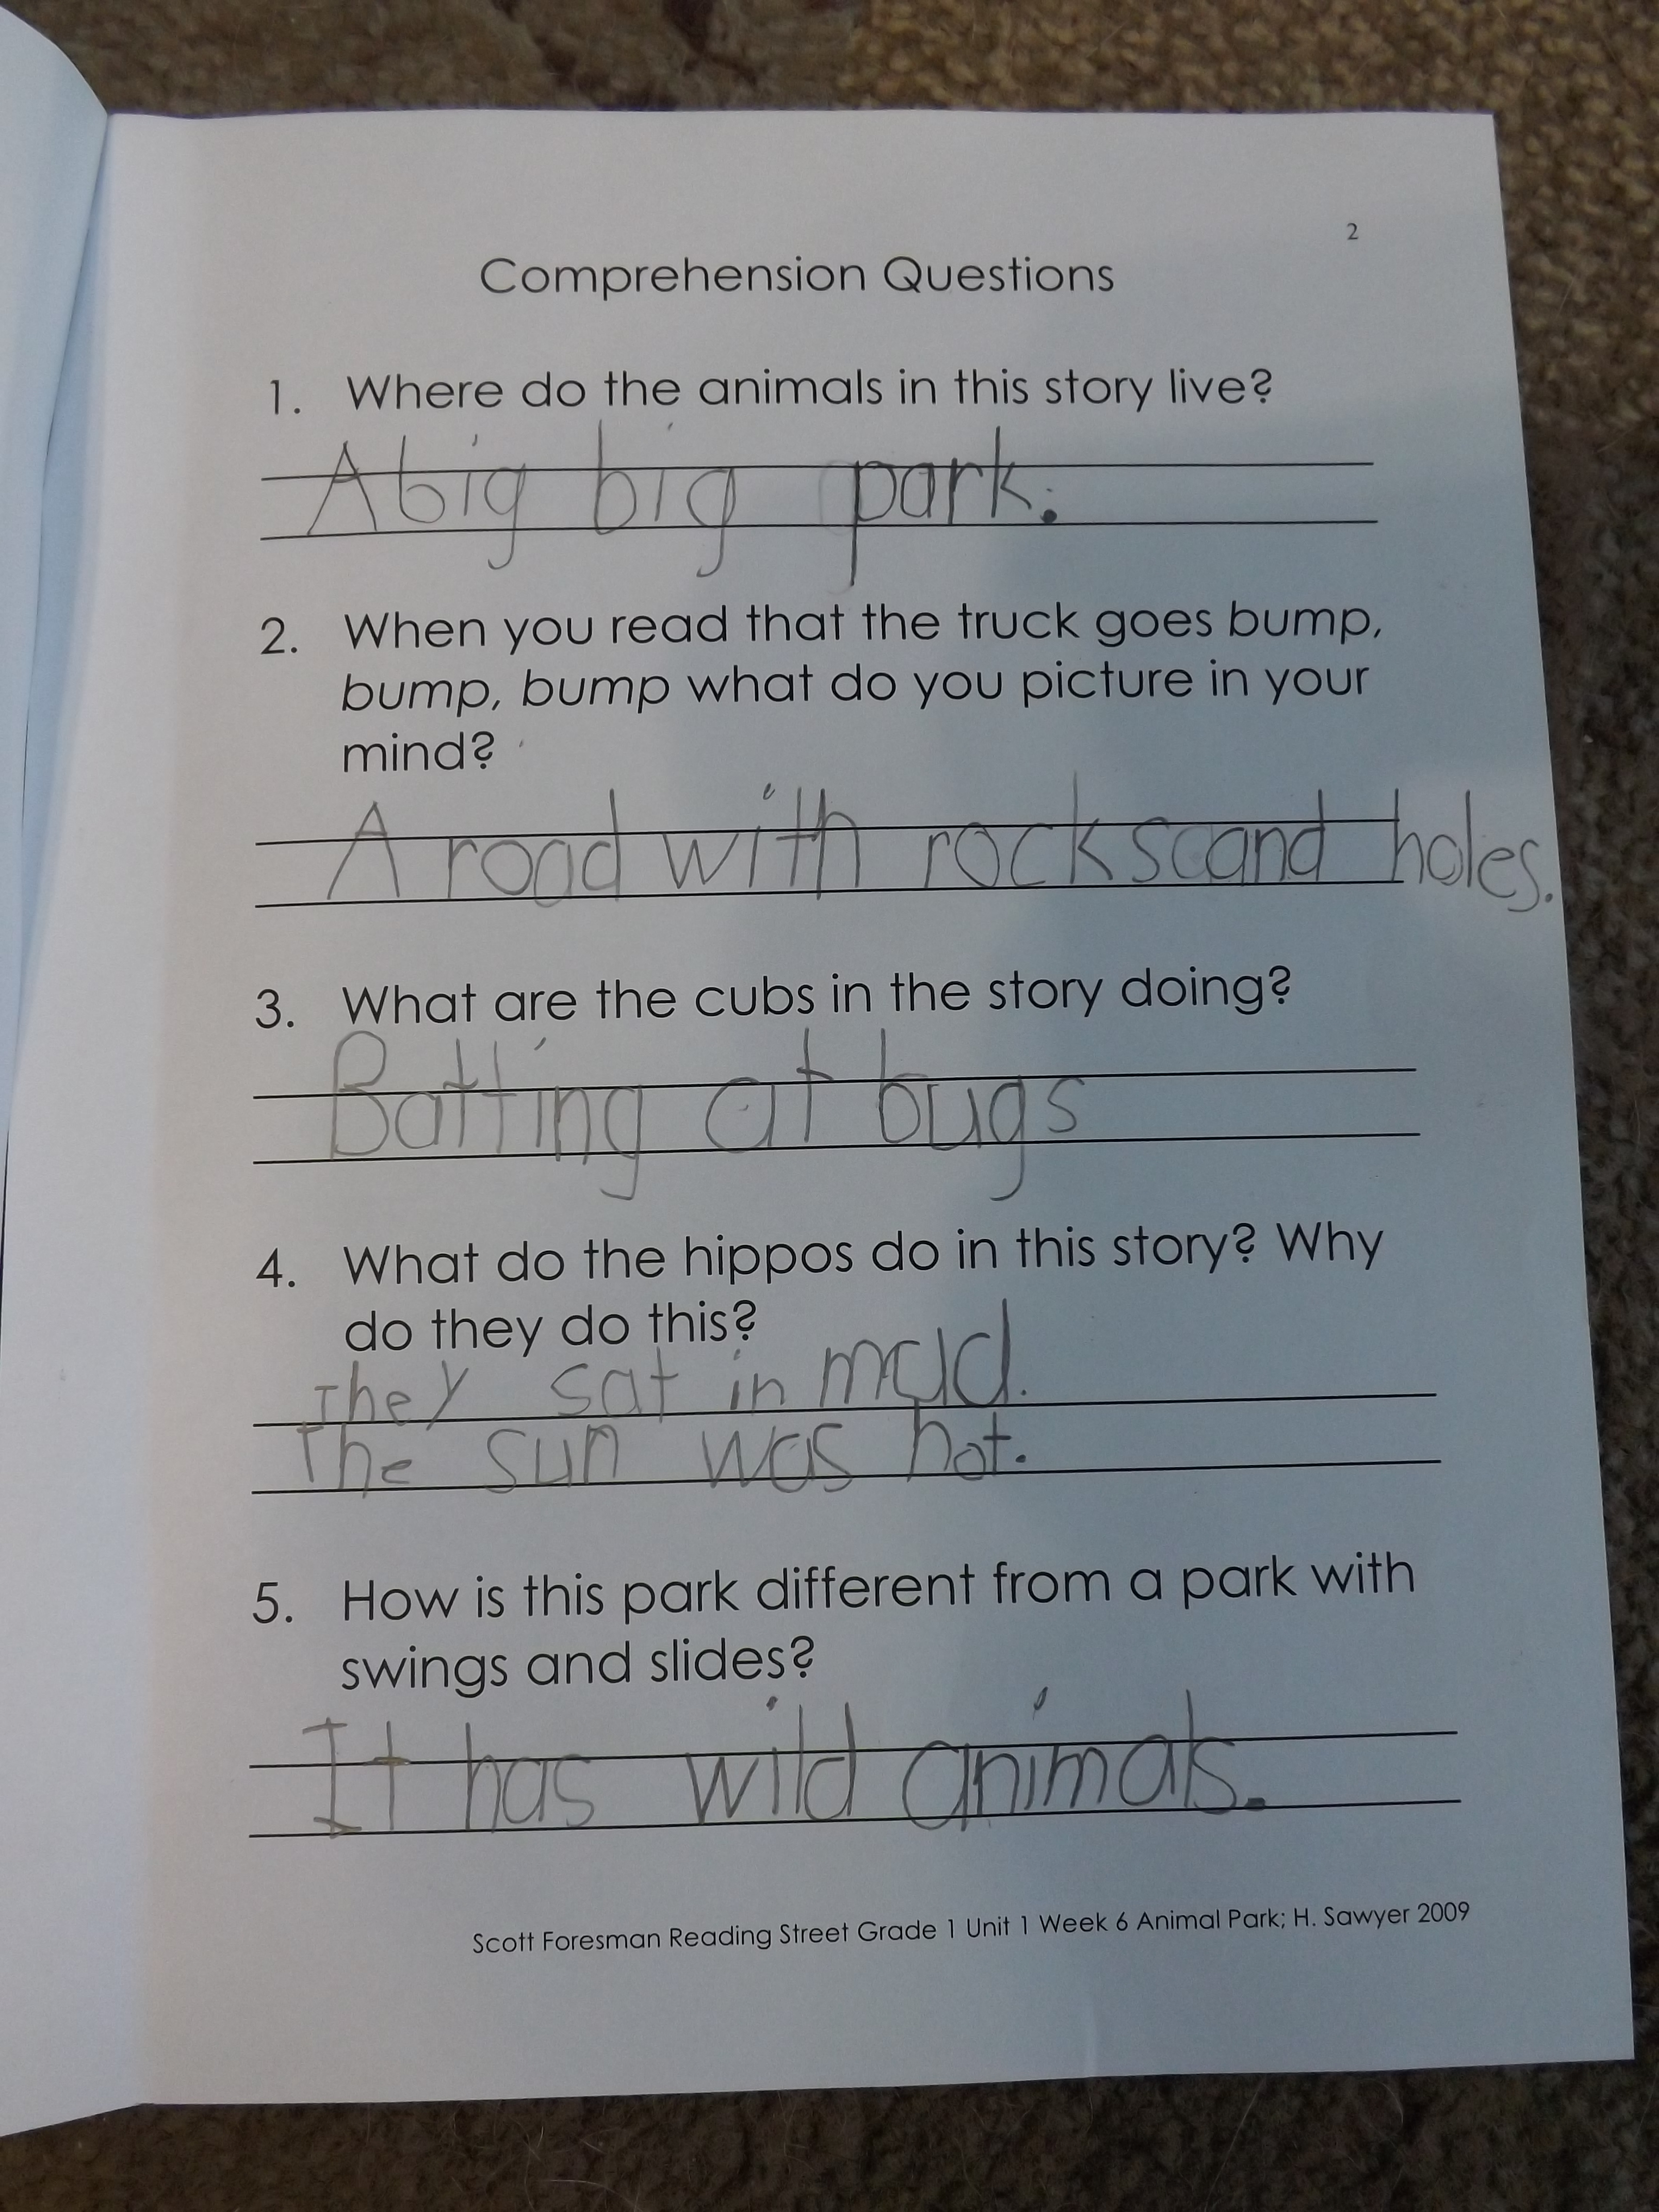 2
Comprehension Questions
1. Where do the animals in this story live?
A big big park.
2. When you read that the truck goes bump,
bump, bump what do you picture in your
mind?
A road with rocks and holes.
3. What are the cubs in the story doing?
Batting at bugs
4. What do the hippos do in this story? Why
do they do this?
They sat in mud.
The sun was hot.
5. How is this park different from a park with
swings and slides?
It has wild animals.
Scott Foresman Reading Street Grade 1 Unit 1 Week 6 Animal Park; H. Sawyer 2009